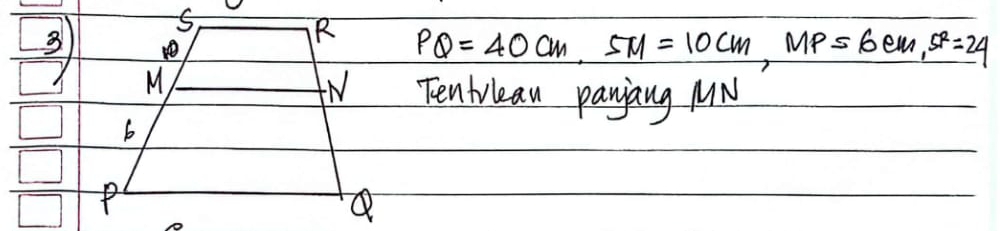 3)
S R
10
M N
6
P Q
PQ = 40 cm, SM = 10 cm, MP = 6 cm, SR = 24
Tentukan panjang MN